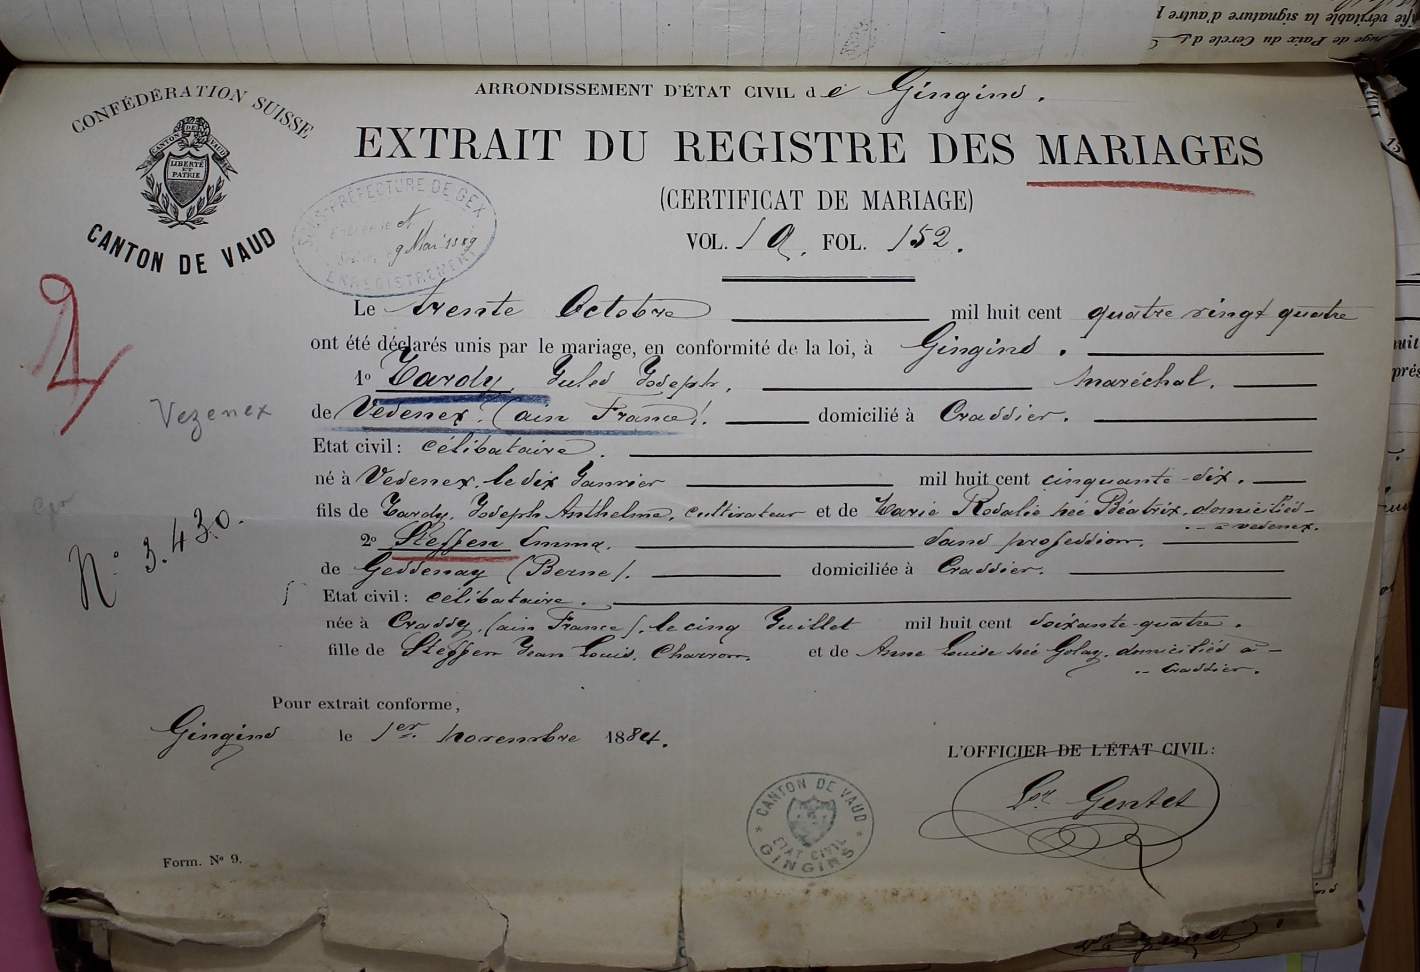 ifie véritable la signature d'autre p
uge de Paix du Cercle de
CONFÉDÉRATION SUISSE
CANTON DE VAUD
LIBERTÉ
ET
PATRIE
CANTON DE VAUD
ARRONDISSEMENT D'ÉTAT CIVIL de Gingins.
EXTRAIT DU REGISTRE DES MARIAGES
(CERTIFICAT DE MARIAGE)
SOUS-PRÉFECTURE DE GEX
9 Mai 1889
ENREGISTREMENT
VOL. 1 a. FOL. 152.
Le trente Octobre mil huit cent quatre vingt quatre
ont été déclarés unis par le mariage, en conformité de la loi, à Gingins.
1º Tardy Jules Joseph. maréchal.
Vezenex
de Vesenex. (ain France). domicilié à Crassier.
Etat civil: célibataire.
né à Vesenex. le dix Janvier mil huit cent cinquante-six.
fils de Tardy, Joseph Anthelme, cultivateur et de Marie Rosalie née Béatrix, domiciliés-
-- à vesenex.
Nº 3.430.
2º Steffen Emma. sans profession.
de Gessenay (Berne). domiciliée à Crassier.
Etat civil: célibataire.
née à Crassy. (ain France). le cinq Juillet mil huit cent soixante-quatre.
fille de Steffen Jean Louis, Charron. et de Anne Louise née Golay, domiciliés à -
-- Crassier.
Pour extrait conforme,
Gingins le 1er. novembre 1884.
L'OFFICIER DE L'ÉTAT CIVIL:
Ls Gentet
CANTON DE VAUD
ETAT CIVIL
GINGINS
Form. Nº 9.